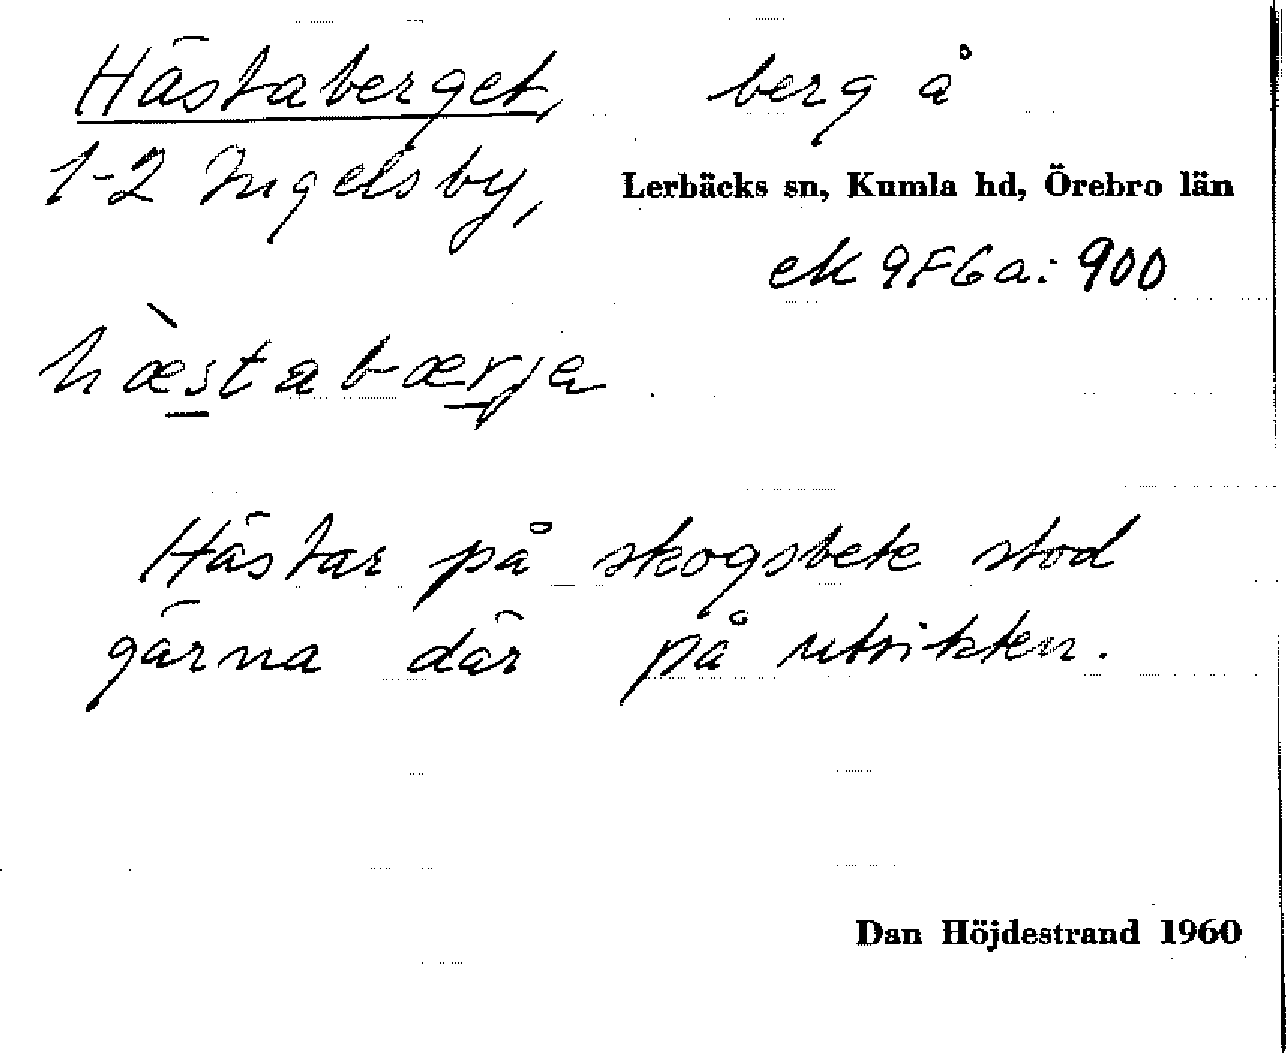 Hästaberget, berg å
1-2 Ingelsby, Lerbäcks sn, Kumla hd, Örebro län
ek 9F6a: 900
hæ̀stabærja
Hästar på skogsbete stod
gärna där på utsikten.
Dan Höjdestrand 1960